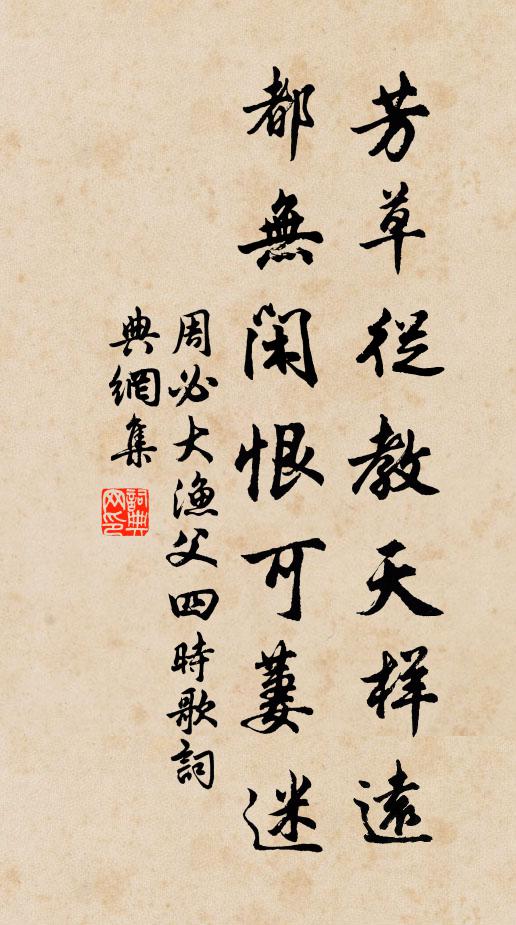 芳草從教天樣遠
都無閑恨可萋迷
周必大漁父四時歌詞
典網集
詞典網印